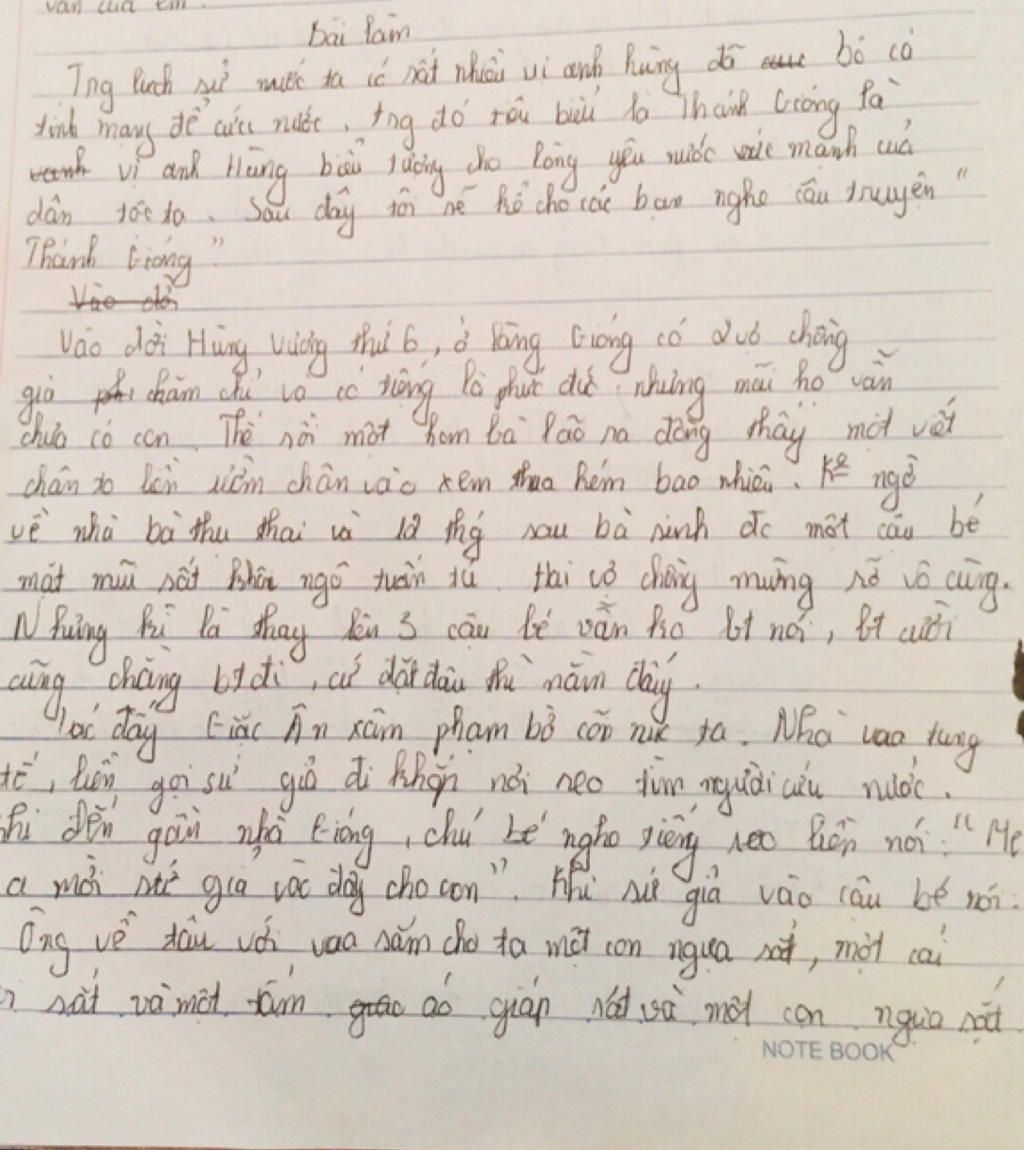 văn của em.
Bài làm
Tng lịch sử nước ta có rất nhiều vi anh hùng đã bỏ cả
tính mạng để cứu nước, tng đó tiêu biểu là Thánh Gióng là
vị anh Hùng biểu tượng cho lòng yêu nước sức mạnh của
dân tộc ta. Sau đây tôi sẽ kể cho các bạn nghe câu truyện "
Thánh Gióng"
Vào đời
Vào đời Hùng Vương thứ 6, ở làng Gióng có 2 vợ chồng
già chăm chỉ và có tiếng là phúc đức nhưng mãi họ vẫn
chưa có con. Thế rồi một hom bà lão ra đồng thấy một vết
chân to liền ướm chân vào xem thua kém bao nhiêu. Ko ngờ
về nhà bà thụ thai và 12 thg sau bà sinh đc một cậu bé
mặt mũi rất khôi ngô tuấn tú. Hai vợ chồng mừng rỡ vô cùng.
Nhưng kì lạ thay lên 3 cậu bé vẫn ko bt nói, bt cười
cũng chẳng bt đi, cứ đặt đâu thì nằm đấy.
đấy Giặc Ân xâm phạm bờ cõi nc ta. Nhà vua
liền gọi sứ giả đi khắp nơi reo tìm người cứu nước.
đến gần nhà Gióng, chú bé nghe tiếng reo liền nói: "Mẹ
a mời sứ giả vào đây cho con". Khi sứ giả vào cậu bé nói:
Ông về tâu với vua sắm cho ta một con ngựa sắt, một cái
sắt và một tấm áo giáp sắt và một con ngựa sắt
NOTE BOOK